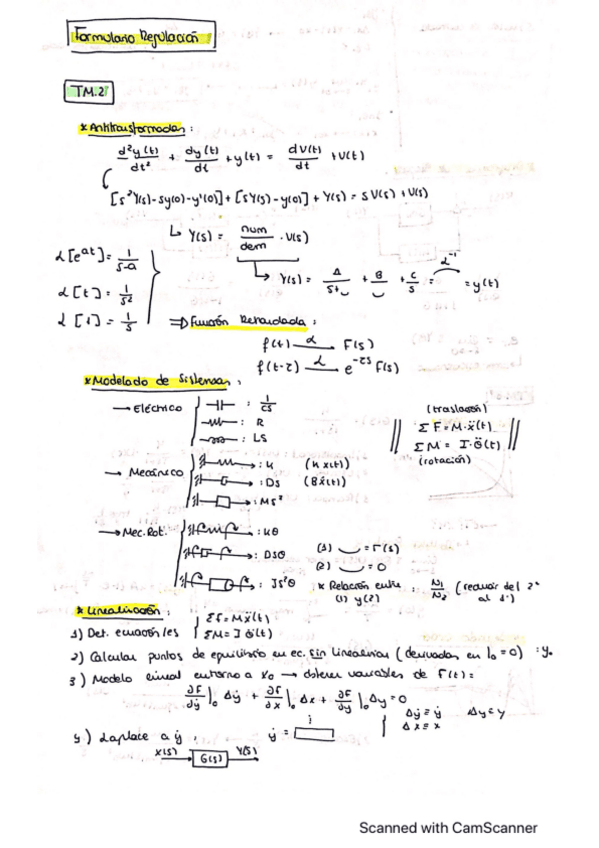 Formulario Regulación
TM.2
* Antitransformadas :
d²y(t)/dt² + dy(t)/dt + y(t) = dU(t)/dt + U(t)
[s²Y(s)-sy(0)-y'(0)] + [sY(s)-y(0)] + Y(s) = SU(s) + U(s)
↳ Y(s) = num/dem · U(s)
L[e^at] = 1/(s-a)
↳ Y(s) = A/(s+_) + B/_ + C/s = L⁻¹ = y(t)
L[t] = 1/s²
L[1] = 1/s
⇒ Función Retardada :
f(t) L F(s)
f(t-τ) L e^-τs F(s)
* Modelado de Sistemas :
→ Eléctrico
: 1/CS
: R
: LS
(traslación)
ΣF = M·ẍ(t)
ΣM = I·θ̈(t)
(rotación)
→ Mecánico
: K (K x(t))
: DS (Bẋ(t))
: MS²
→ Mec. Rot.
: Kθ
: DSθ
: JS²θ
(1) = Γ(s)
(2) = 0
* Relación entre (1) y (2) : N1/N2 (reducir del 2º al 1º)
* Linealización :
1) Det. ecuación/es { ΣF = Mẍ(t)
ΣM = I θ̈(t)
2) Calcular puntos de equilibrio en ec. sin linealizar (derivadas en |₀ = 0) : y₀
3) Modelo lineal entorno a x₀ → obtener variables de F(t) :
∂F/∂ẏ |₀ Δẏ + ∂F/∂x |₀ Δx + ∂F/∂y |₀ Δy = 0
Δẏ = ẏ Δy = y
Δx = x
4) Laplace a ẏ , ẏ =
X(s) G(s) Y(s)
Scanned with CamScanner